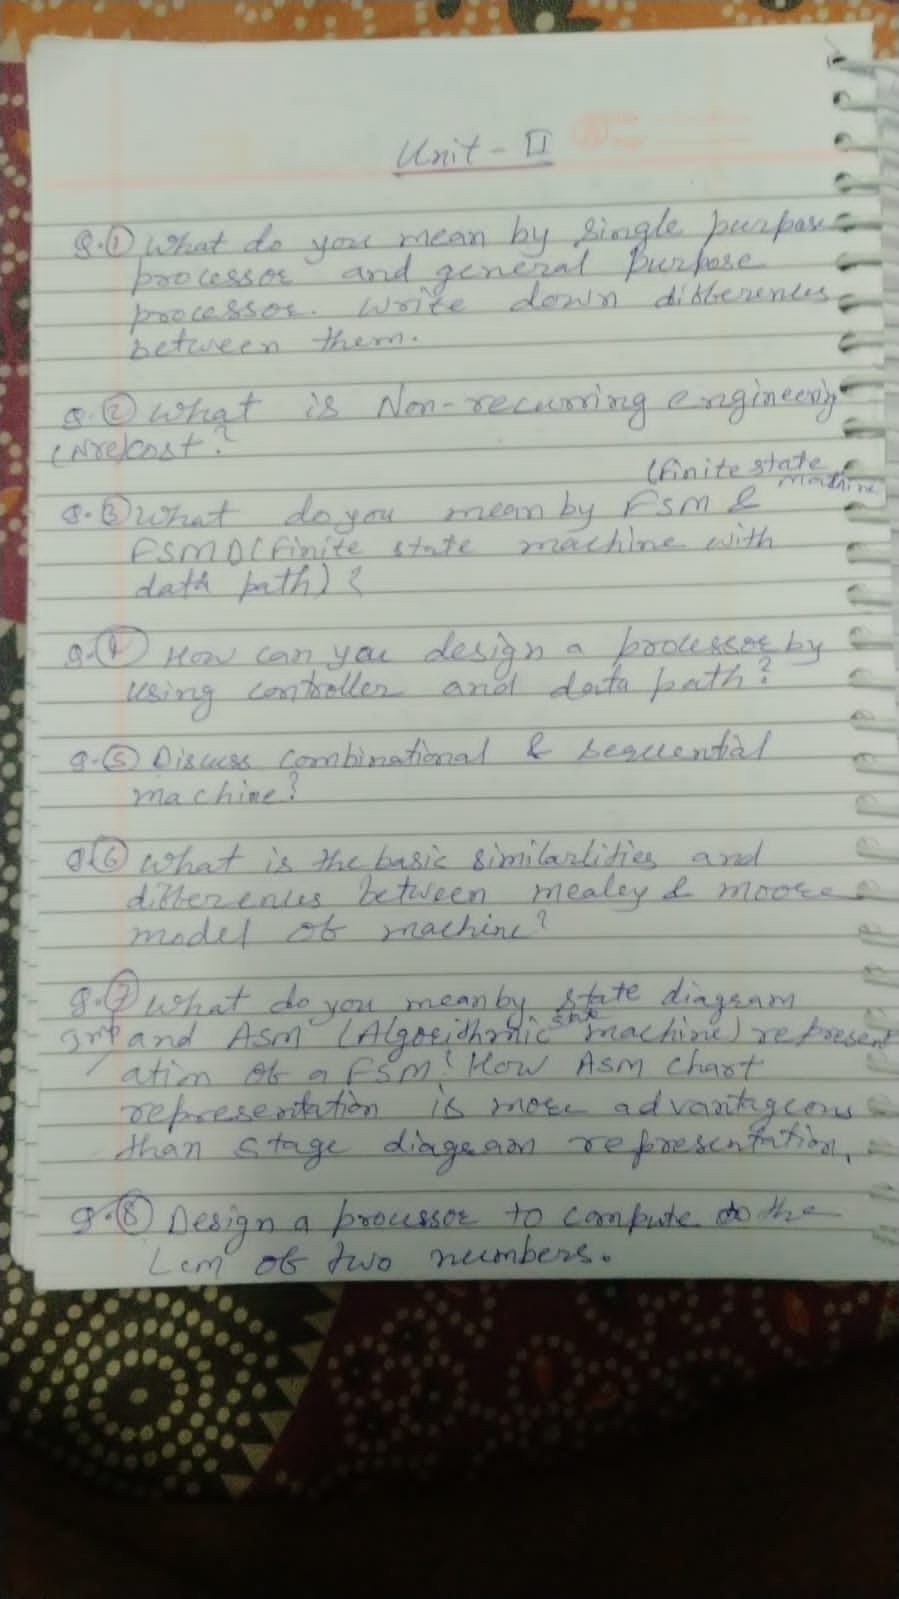 Unit - II
Q.① What do you mean by single purpose
processor and general purpose
processor. Write down differences
between them.
Q.② What is Non-recurring engineering
(Nre)cost?
(finite state
machine
Q.③ What do you mean by FSM &
FSMD(finite state machine with
data path)?
Q.④ How can you design a processor by
using controller and data path?
Q.⑤ Discuss combinational & sequential
machine?
Q⑥ What is the basic similarlities and
differences between mealey & moore
model of machine?
Q.⑦ What do you mean by state diagram
state
Imp and ASM (Algorithmic machine) represent
ation of a FSM? How ASM chart
representation is more advantageous
than stage diagram representation.
Q.⑧ Design a processor to compute the
Lcm of two numbers.